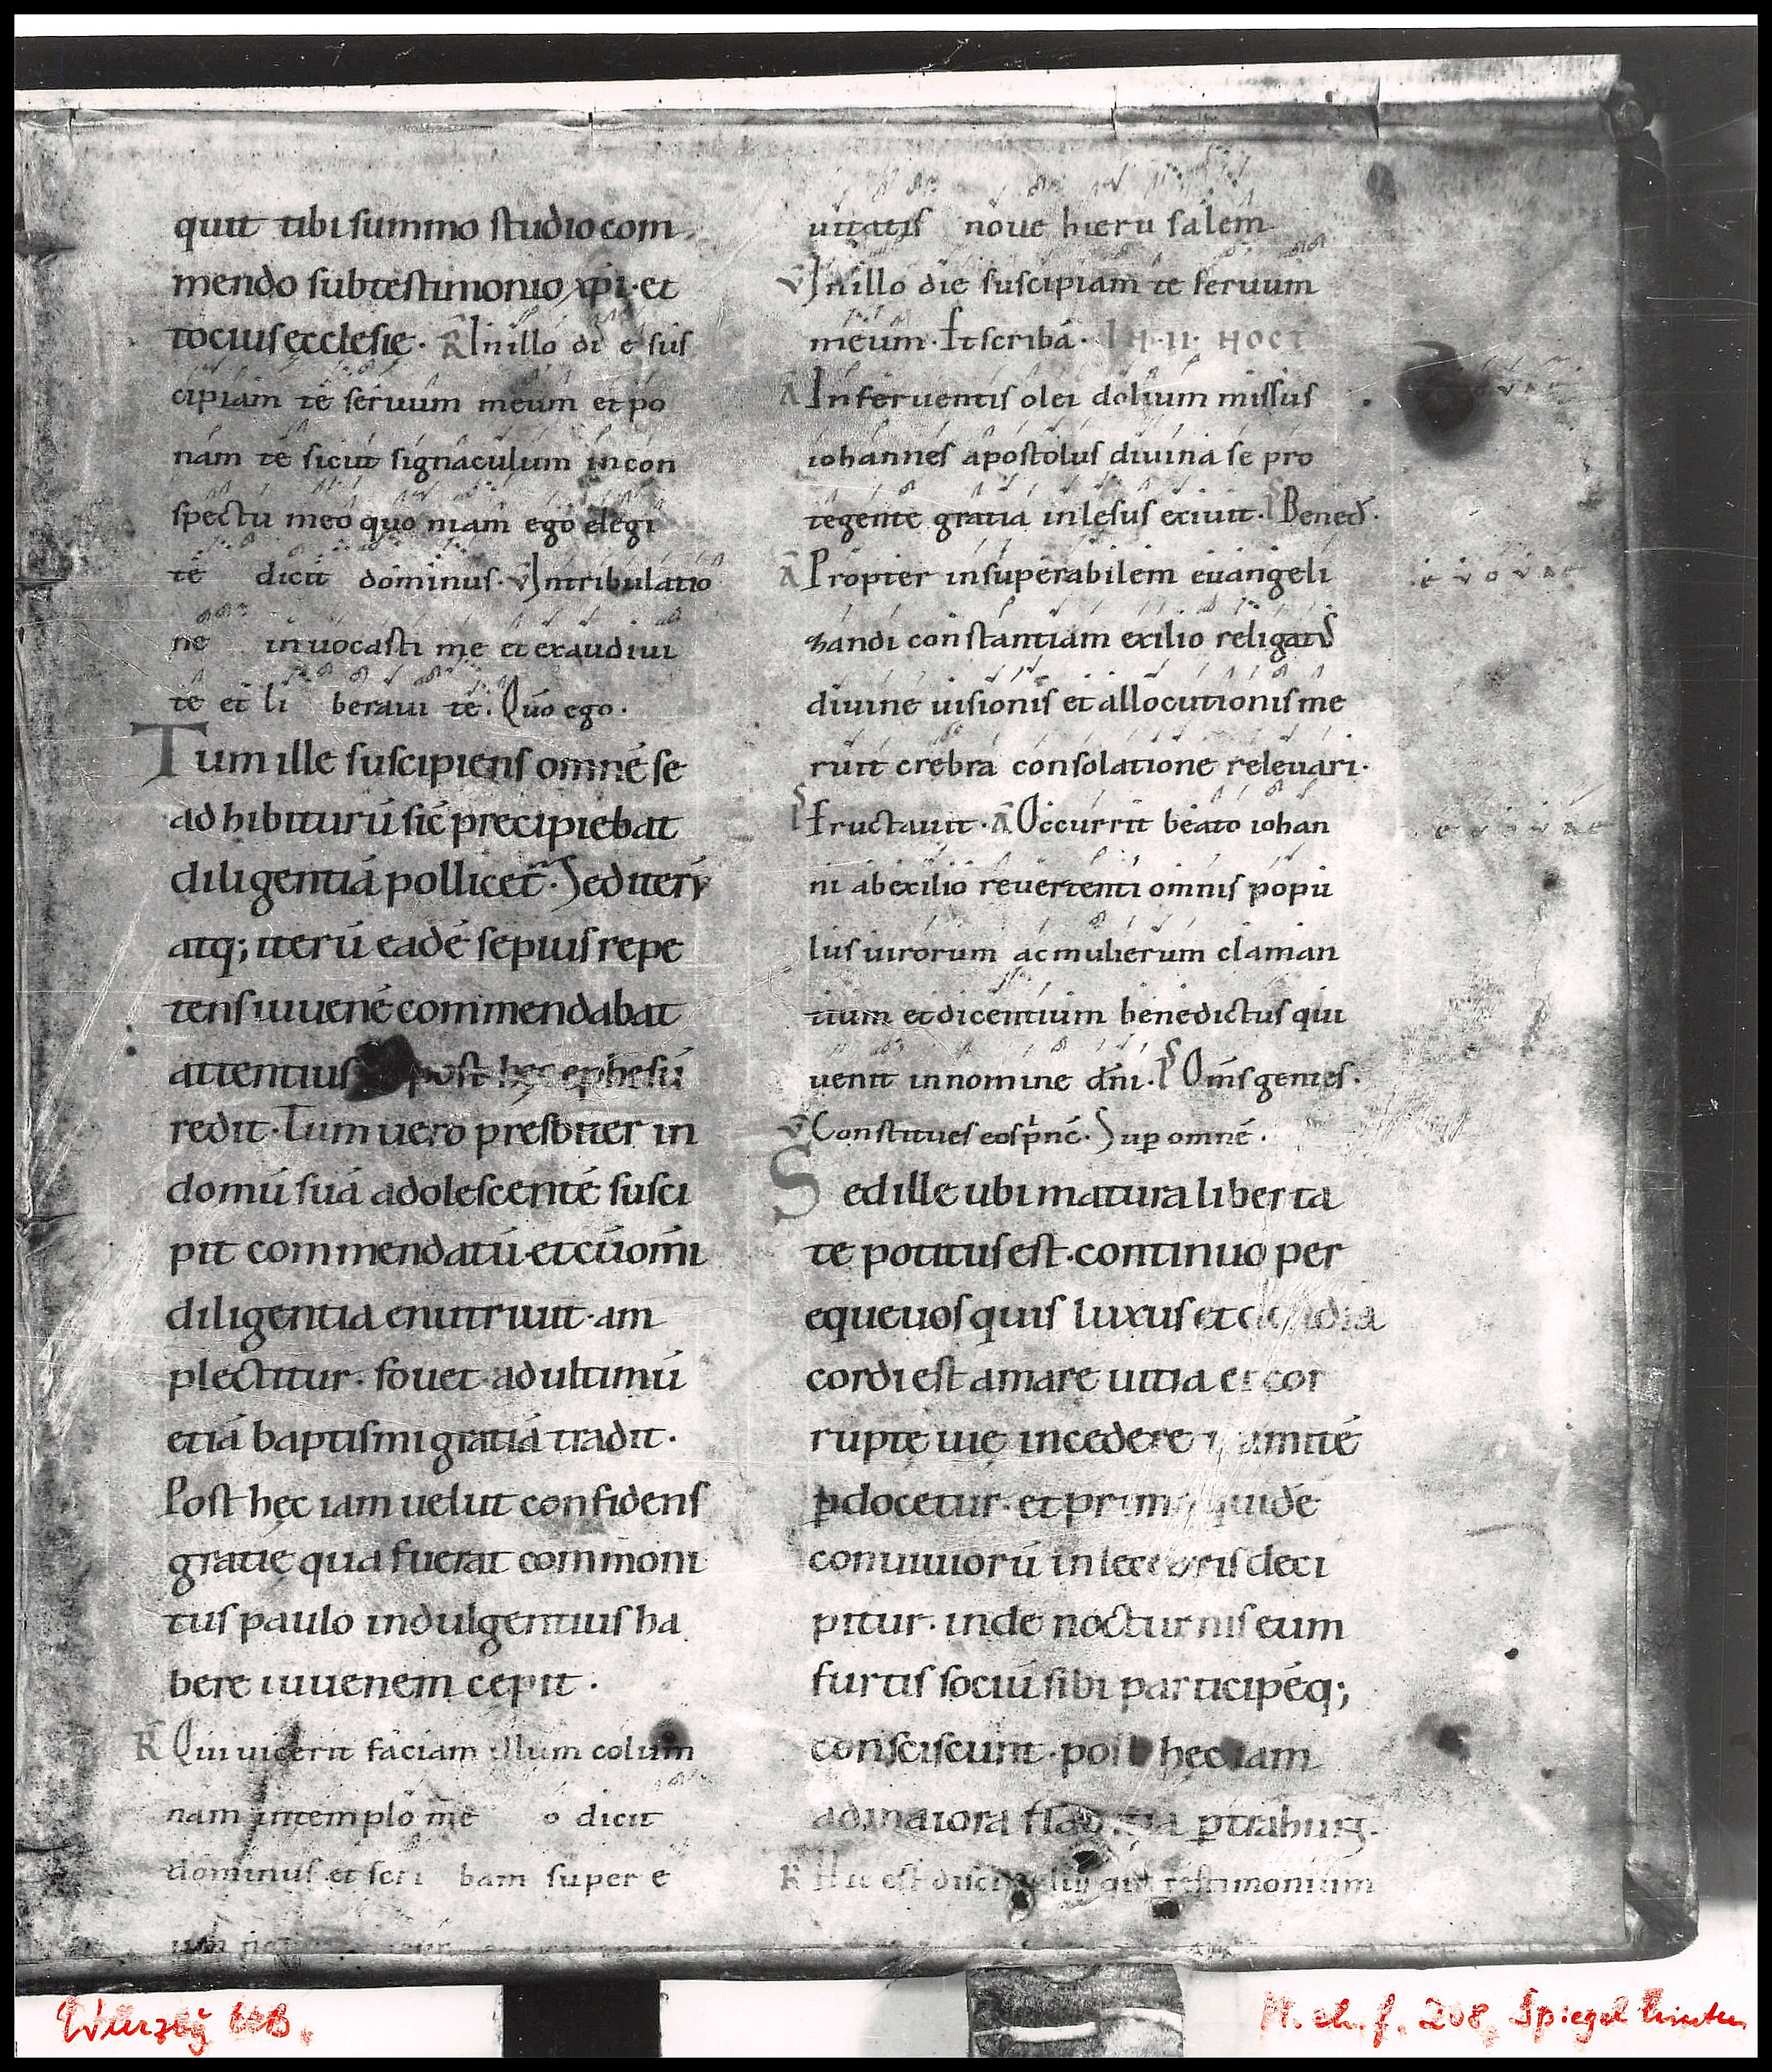 quit tibi summo studio com
mendo sub testimonio xpi· et
tocius ecclesie· A In illo di e sus
cipiam te seruum meum et po
nam te sicut signaculum in con
spectu meo quo niam ego elegi
te dicit dominus· V In tribulatio
ne inuocasti me et exaudiui
te et li beraui te· Quō ego·
Tum ille suscipiens omnē se
adhibiturū sic̄ precipiebat
diligentiā pollicet̄· Sed iterū
atq; iterū eadē sepius repe
tens iuuenē commendabat
attentius post hęc ephesū
redit· Tum uero presbiter in
domū suā adolescentē susci
pit commendatū· et cū om̄i
diligentia enutriuit· am
plectitur· fouet· ad ultimū
etiā baptismi gratiā tradit·
Post hęc iam uelut confidens
gratię qua fuerat commoni
tus paulo indulgentius ha
bere iuuenem cepit·
R Qui uicerit faciam illum colum
nam in templo me o dicit
dominus et scri bam super e
um
uitatis noue hieru salem
V In illo die suscipiam te seruum
meum· Et scribā· IN·II· NOCT
A In feruentis olei dolium missus
iohannes apostolus diuina se pro
tegente gratia inlesus exiuit· Ps Bened̄·
A Propter insuperabilem euangeli
e v o v a e
zandi constantiam exilio religatus
diuine uisionis et allocutionis me
ruit crebra consolatione releuari·
Ps Eructauit· A Occurrit beato iohan
e v o v a e
ni ab exilio reuertenti omnis popu
lus uirorum ac mulierum claman
tium et dicentium benedictus qui
uenit in nomine dn̄i· Ps Om̄s gentes·
V Constitues eos prīnc̄· Sup omnē·
Sed ille ubi matura liberta
te potitus est· continuo per
equeuos quis luxus et
cordi est amare uitia et cor
ruptę uię incedere tramitē
pdocetur· et primo quidē
conuiuiorū inlecebris deci
pitur· inde nocturnis eum
furtis sociū sibi participēq;
consciscunt· post hęc iam
ad maiora flagitia ptrahunt·
R Hic est discipulus qui testimonium
Würzbg UB.
M. ch. f. 208, Spiegel hinten